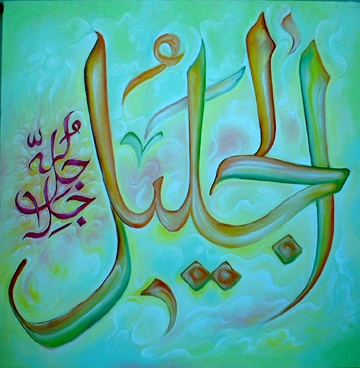 الجليل
جل جلاله